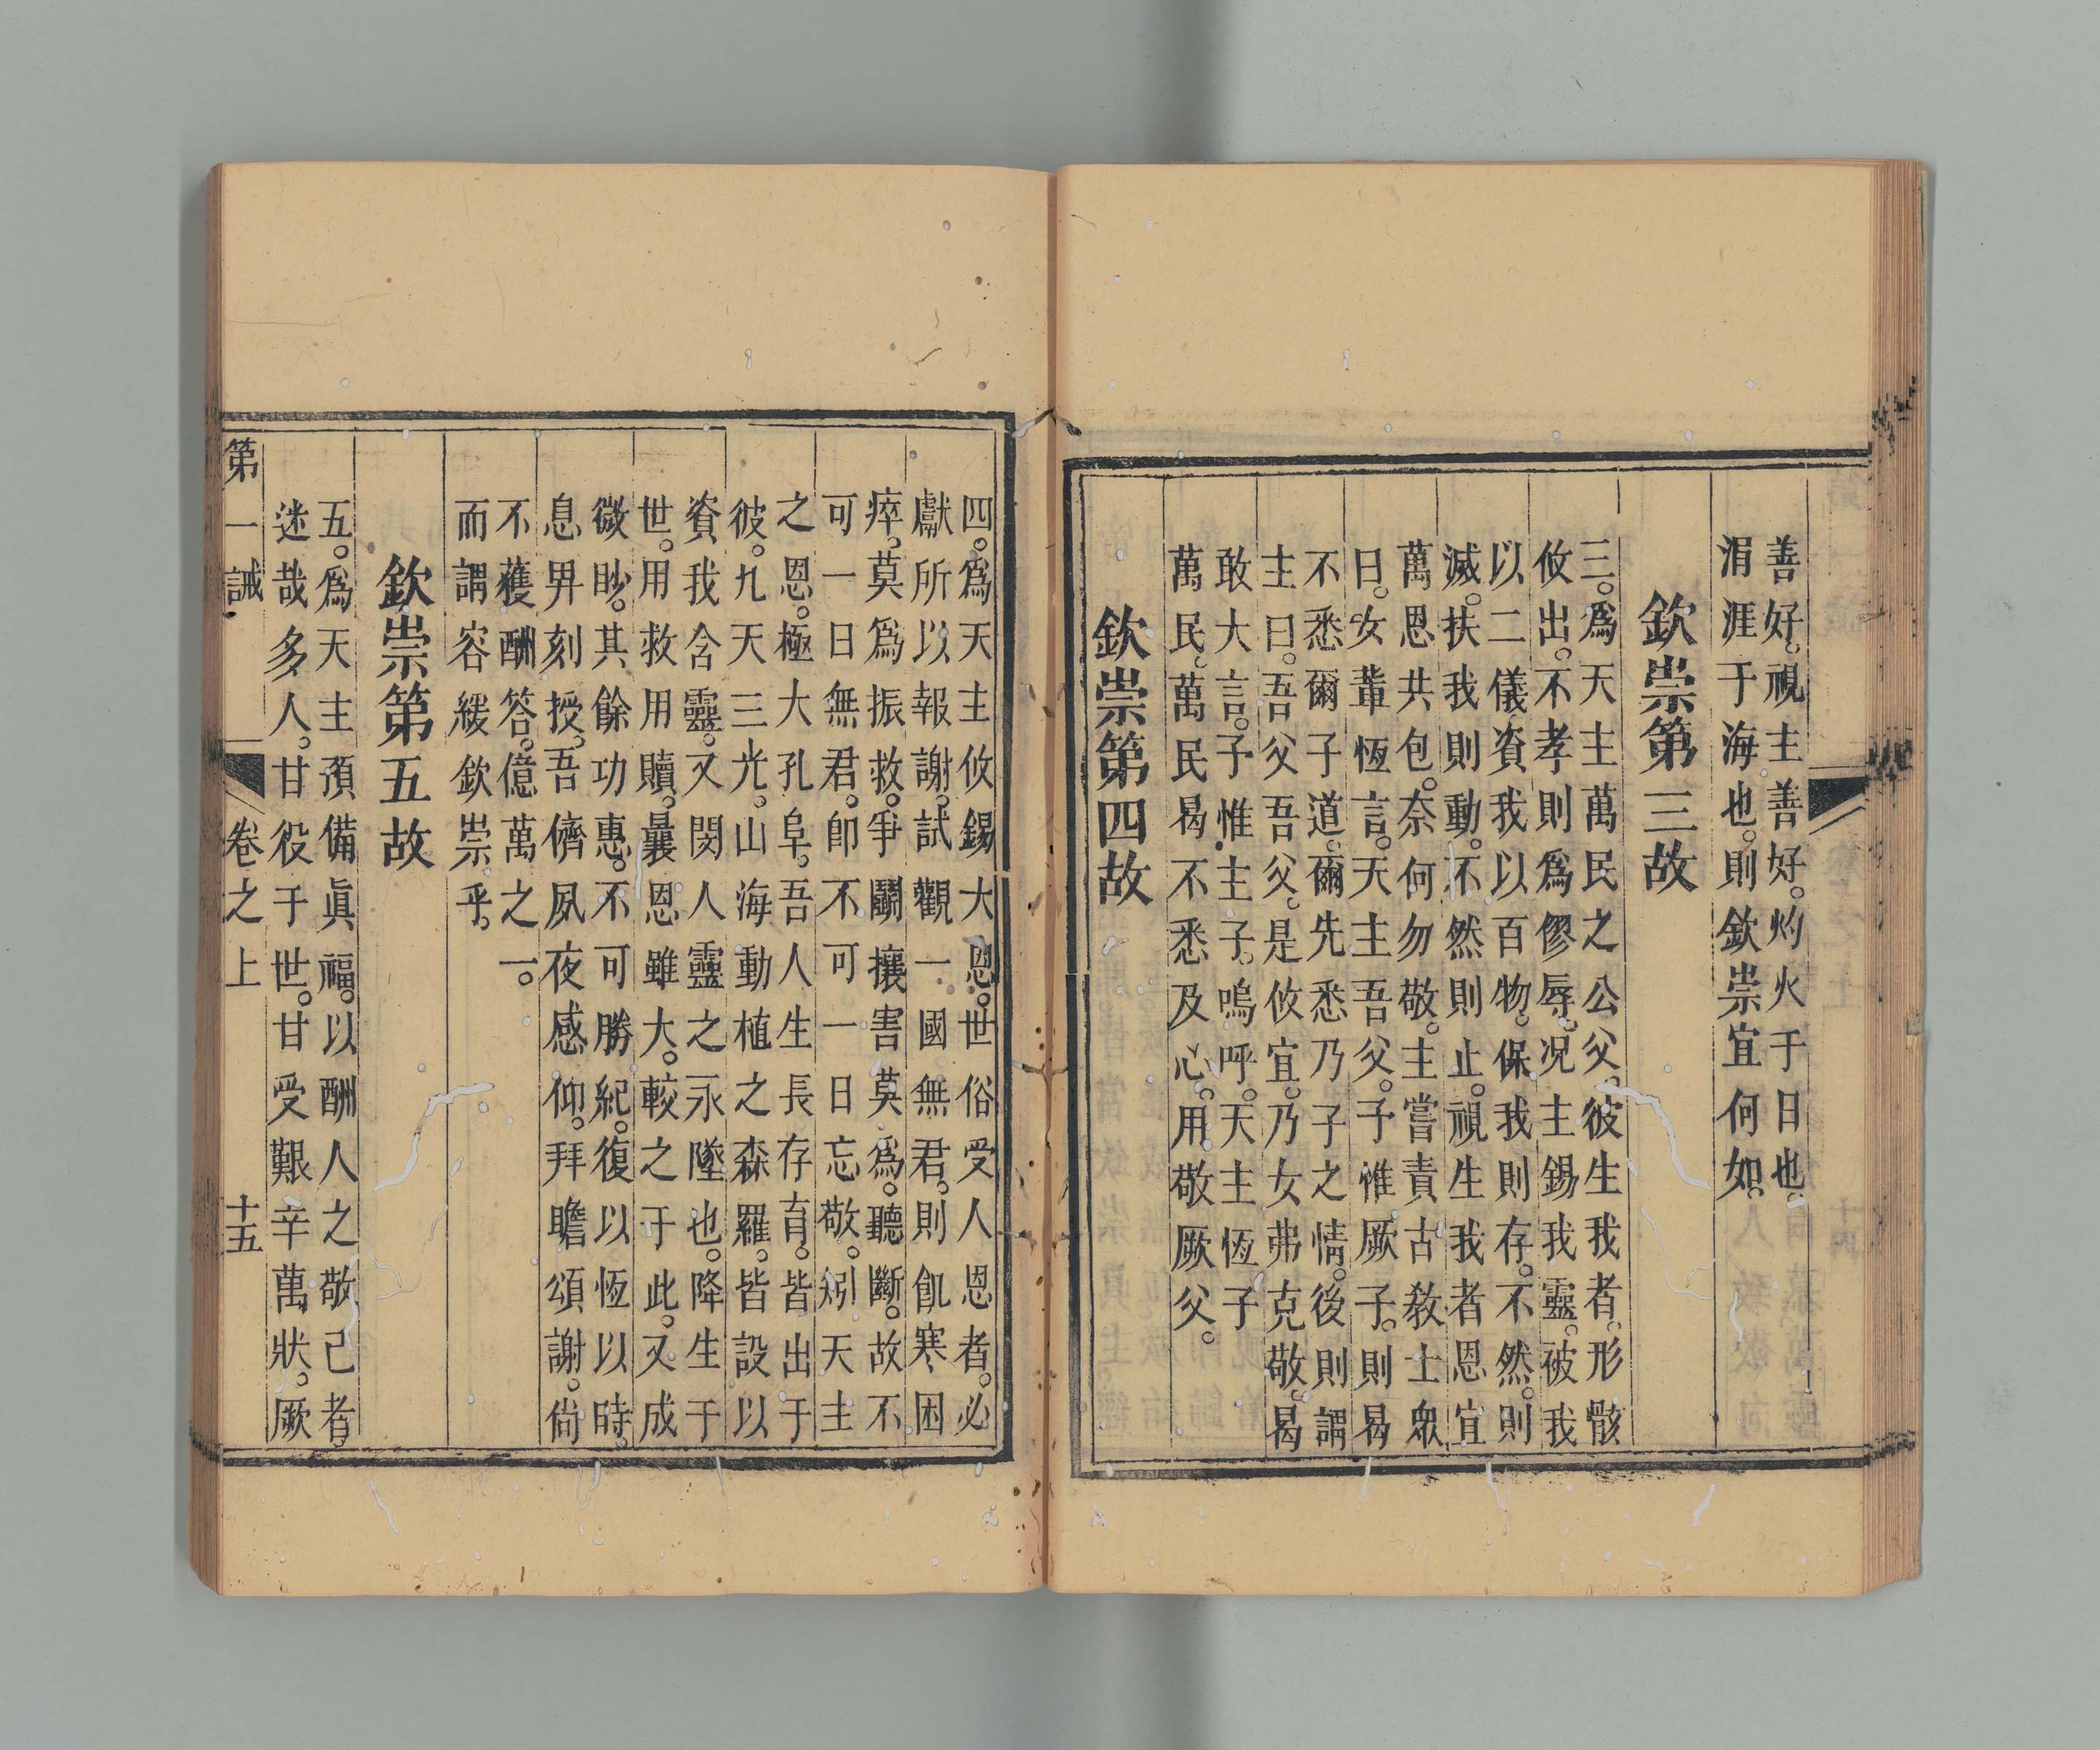 善好。視主善好。灼火于日也。
涓涯于海也。則欽崇宜何如。
欽崇第三故
三。爲天主萬民之公父。彼生我者。形骸
攸出。不孝則爲僇辱。况主錫我靈。被我
以二儀。資我以百物。保我則存。不然。則
滅。扶我則動。不然則止。視生我者恩宜
萬恩共包。奈何勿敬。主嘗責古教士眾
曰。女輩恆言。天主吾父。予惟厥子。則曷
不悉爾子道。爾先悉乃子之情。後則謂
主曰。吾父吾父。是攸宜。乃女弗克敬。曷
敢大言。予惟主子。嗚呼。天主恆子
萬民。萬民曷不悉及心。用敬厥父。
欽崇第四故
四。爲天主攸錫大恩。世俗受人恩者。必
獻所以報謝。試觀一國無君。則飢寒困
瘁。莫爲振救。爭鬭攘害。莫爲聽斷。故不
可一日無君。卽不可一日忘敬。矧天主
之恩。極大孔阜。吾人生長存育。皆出于
彼。九天三光。山海動植之森羅。皆設以
資我含靈。又閔人靈之永墜也。降生于
世。用救用贖。曩恩雖大。較之于此。又成
微眇。其餘功惠。不可勝紀。復以恆以時。
息畀刻授。吾儕夙夜感仰。拜瞻頌謝。尙
不獲酬答。億萬之一。
而謂容緩欽崇乎。
欽崇第五故
五。爲天主預備眞福。以酬人之敬己者。
迷哉多人。甘役于世。甘受艱辛萬狀。厥
第一誡 卷之上 十五